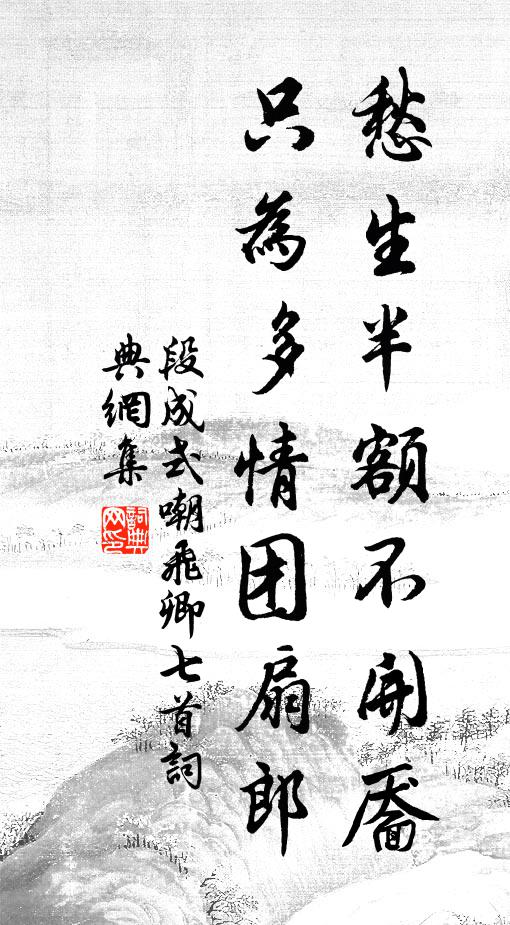 愁生半額不開靨
只為多情团扇郎
段成式嘲飛卿七首詞
典網集
詞典网印